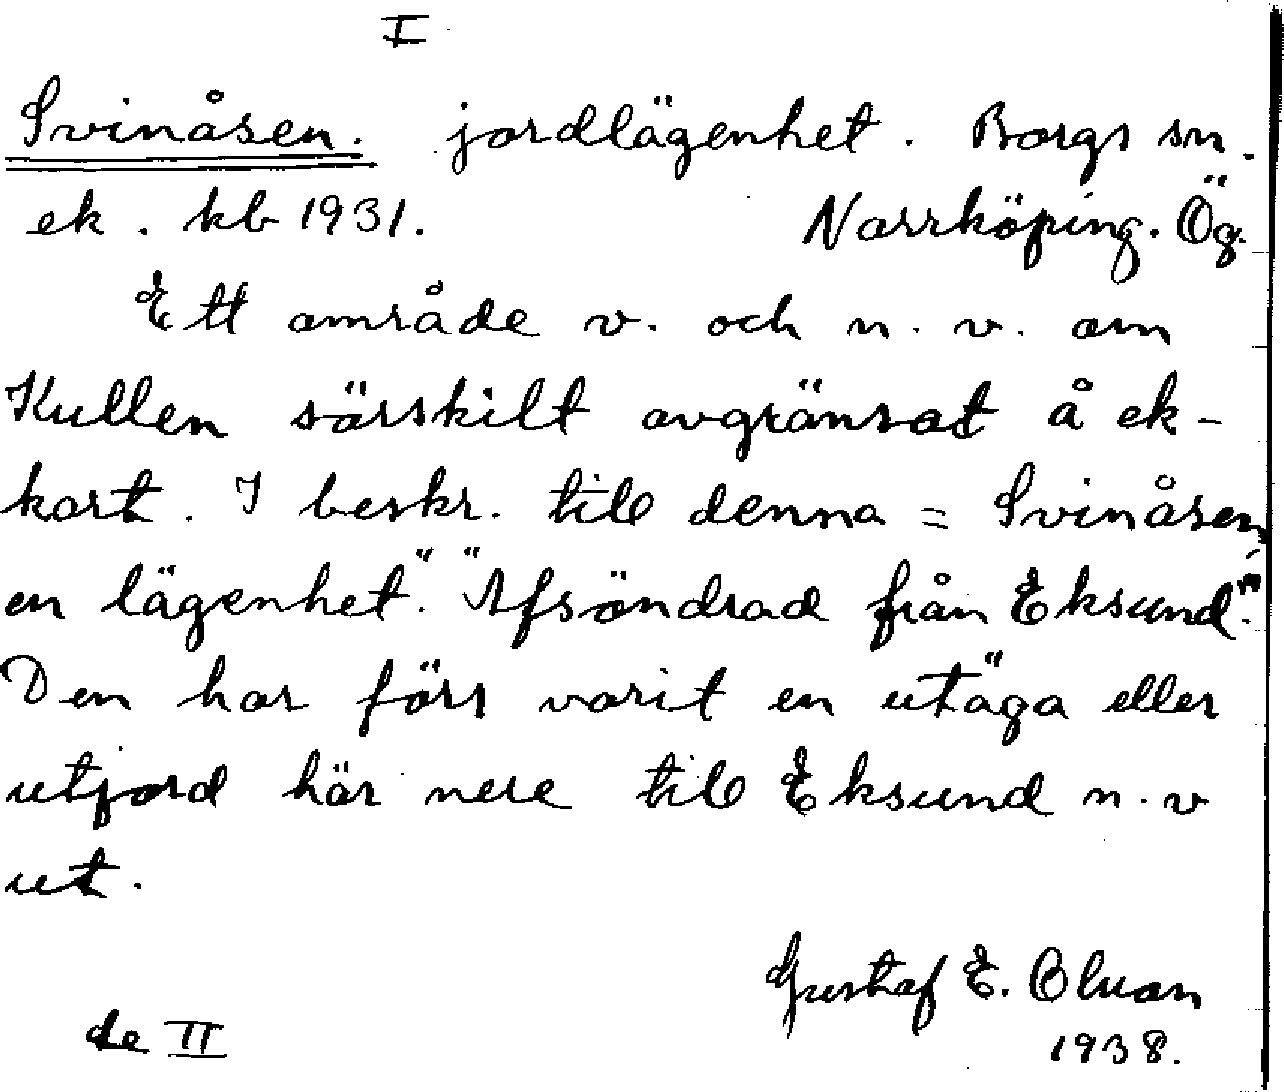 I
Svinåsen. jordlägenhet. Borgs sn.
ek. kb 1931. Norrköping. Ög.
Ett område v. och n. v. om
Kullen särskilt avgränsat å ek-
kart. I beskr. till denna = Svinåsen
en lägenhet." "Afsöndrad från Eksund".
Den har förs varit en utäga eller
utjord här nere till Eksund n. v
ut.
Gustaf E.
de II 1938.